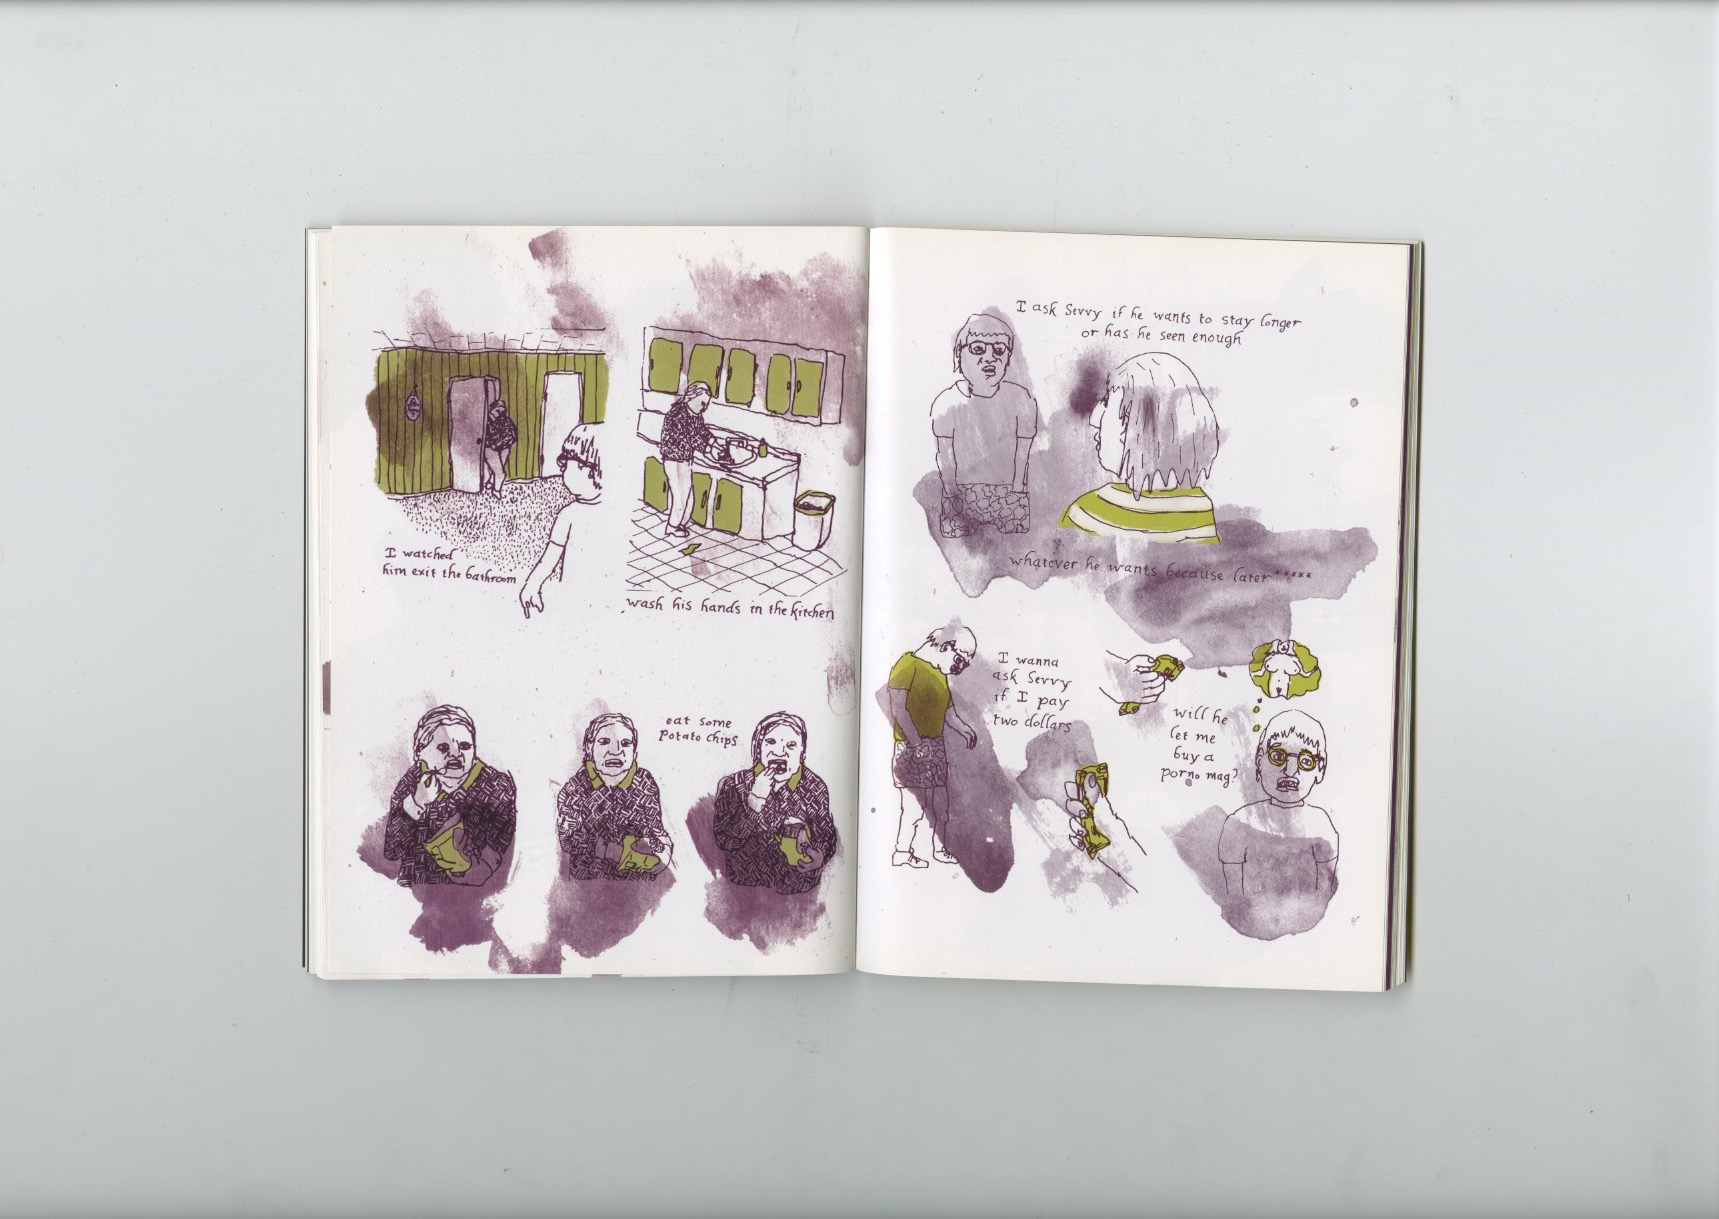 I watched
him exit the bathroom
wash his hands in the kitchen
eat some
potato chips
I ask Sevvy if he wants to stay longer
or has he seen enough
whatever he wants because later*****
I wanna
ask Sevvy
if I pay
two dollars
will he
let me
buy a
porno mag?